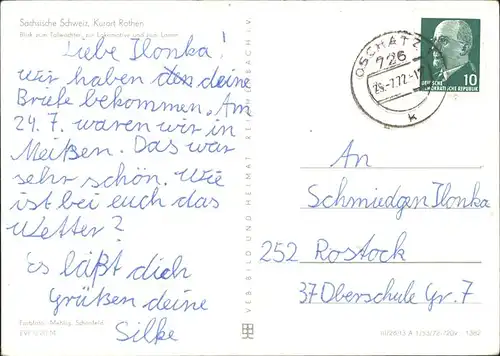 Sächsische Schweiz, Kurort Rathen
Blick vom Talwächter, zur Lokomotive und zum Lamm
Liebe Ilonka!
Wir haben den deine
Briefe bekommen. Am
24. 7. waren wir in
Meißen. Das war
sehr schön. Wie
ist bei euch das
Wetter?
Es läßt dich
Grüßen deine
Silke
VEB BILD UND HEIMAT REICHENBACH I. V.
OSCHATZ
726
-7.72-
K
10
DEUTSCHE
DEMOKRATISCHE REPUBLIK
An
Schmiedgen Ilonka
252 Rostock
37 Oberschule Gr. 7